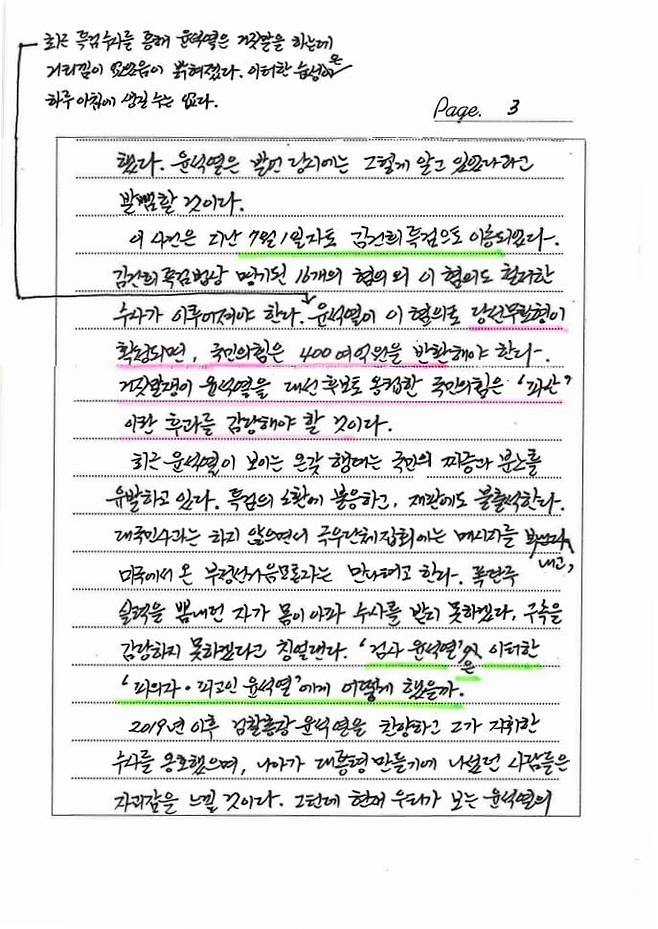 최근 특검수사를 통해 윤석열은 거짓말을 하는데
거리낌이 없었음이 밝혀졌다. 이러한 습성이 은
하루 아침에 생길 수는 없다.
Page. 3
했다. 윤석열은 발언 당시에는 그렇게 알고 있었다라고
발뺌할 것이다.
이 사건은 지난 7월 1일자로 김건희 특검으로 이송되었다.
김건희 특검법상 명기된 16개의 혐의 외 이 혐의도 철저한
수사가 이루어져야 한다. 윤석열이 이 혐의로 당선무효형이
확정되면, 국민의힘은 400여억원을 반환해야 한다.
거짓말쟁이 윤석열을 대선 후보로 옹립한 국민의힘은 '파산'
이란 후과를 감당해야 할 것이다.
최근 윤석열이 보이는 온갖 행태는 국민의 짜증과 분노를
유발하고 있다. 특검의 소환에 불응하고, 재판에도 불출석한다.
대국민사과는 하지 않으면서 극우단체 집회에는 메시지를
내고,
미국에서 온 부정선거음모론자는 만나려고 한다. 폭탄주
실력을 뽐내던 자가 몸이 아파 수사를 받지 못하겠다, 구속을
감당하지 못하겠다고 칭얼댄다. '검사 윤석열'은 이러한
'피의자·피고인 윤석열'에게 어떻게 했을까.
2019년 이후 검찰총장 윤석열을 찬양하고 그가 지휘한
수사를 옹호했으며, 나아가 대통령 만들기에 나섰던 사람들은
자괴감을 느낄 것이다. 그런데 현재 우리가 보는 윤석열의